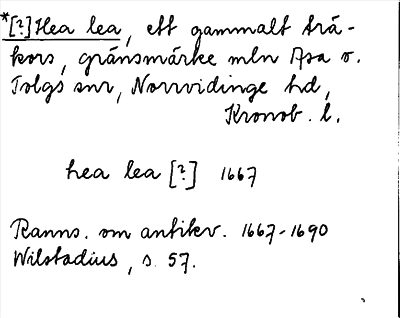 *[?] Hea lea, ett gammalt trä-
kors, gränsmärke mln Asa o.
Tolgs snr, Norrvidinge hd,
Kronob. l.
hea lea [?] 1667
Ranns. om antikv. 1667-1690
Wilstadius, s. 57.